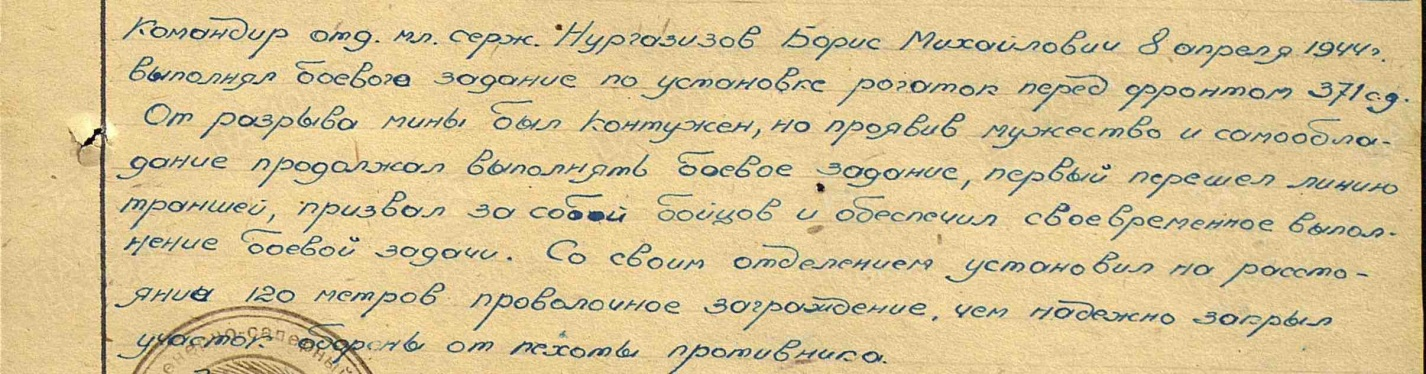 Командир отд. мл. серж. Нургазизов Борис Михайлович 8 апреля 1944г.
выполнял боевого задание по установке рогаток перед фронтом 371 с.д.
От разрыва мины был контужен, но проявив мужество и самообла-
дание продолжал выполнять боевое задание, первый перешел линию
траншей, призвал за собой бойцов и обеспечил своевременное выпол-
нение боевой задачи. Со своим отделением установил на рассто-
яние 120 метров проволочное заграждение, чем надежно закрыл
участок обороны от пехоты противника.
енерно-саперный